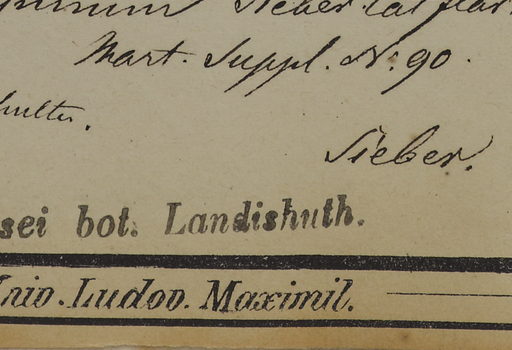 Sieber
Mart. Suppl. N. 90.
Sieber.
sei bot. Landishuth.
Univ. Ludov. Maximil.